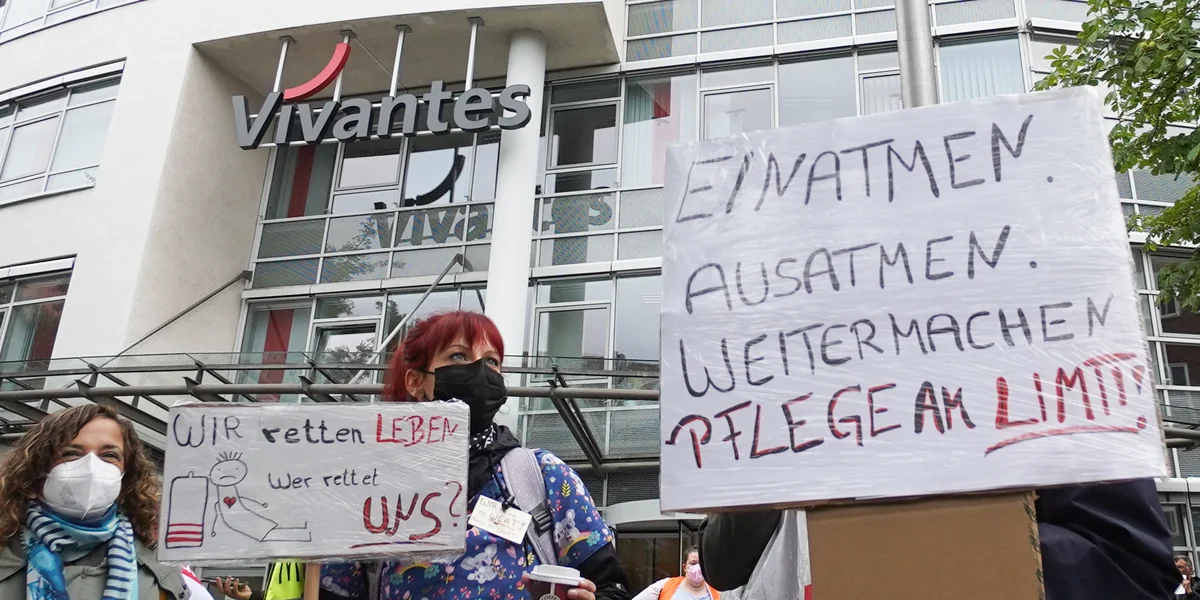 Vivantes
Vivantes
EINATMEN.
AUSATMEN.
WEITERMACHEN
PFLEGE AM LIMIT!
WIR retten LEBEN
Wer rettet
UNS?